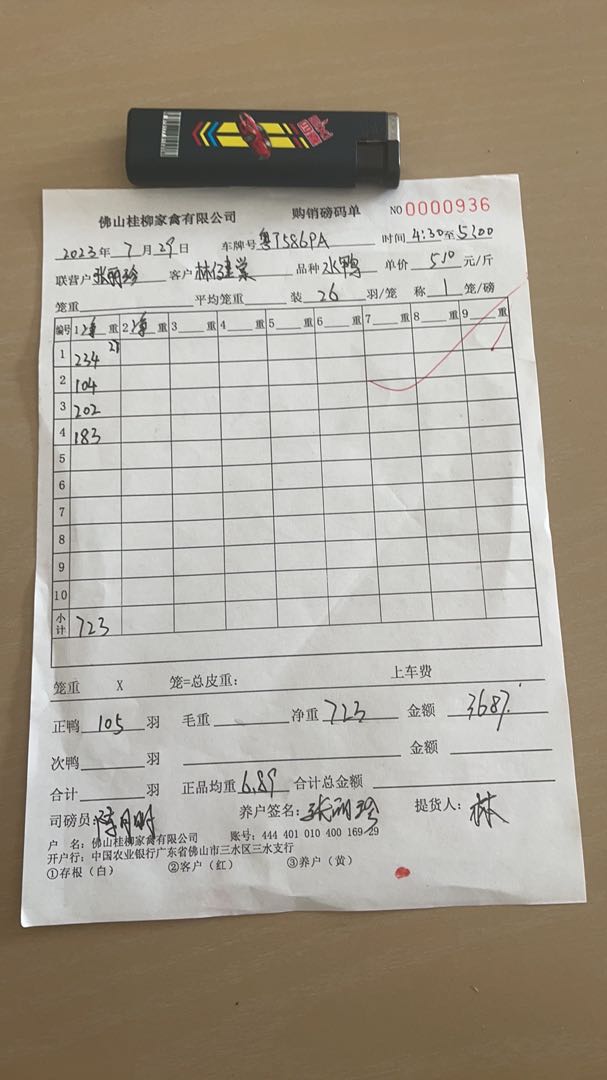 佛山桂柳家禽有限公司 购销磅码单 NO 0000936
2023年 7月 29日 车牌号 粤T5869A 时间 4:30至5:00
联营户 张丽珍 客户 品种 水鸭 单价 5.10 元/斤
笼重 平均笼重 装 26 羽/笼 称 1 笼/磅
编号 1 净 重 2 净 重 3 重 4 重 5 重 6 重 7 重 8 重 9 重
1 234
2 104
3 202
4 183
5
6
7
8
9
10
小计 723
笼重 X 笼=总皮重: 上车费
正鸭 105 羽 毛重 净重 723 金额 3687.
次鸭 羽 金额
合计 羽 正品均重 6.89 合计总金额
司磅员: 养户签名: 张丽珍 提货人: 林
户 名: 佛山桂柳家禽有限公司 账号: 444 401 010 400 169 29
开户行: 中国农业银行广东省佛山市三水区三水支行
①存根（白） ②客户（红） ③养户（黄）